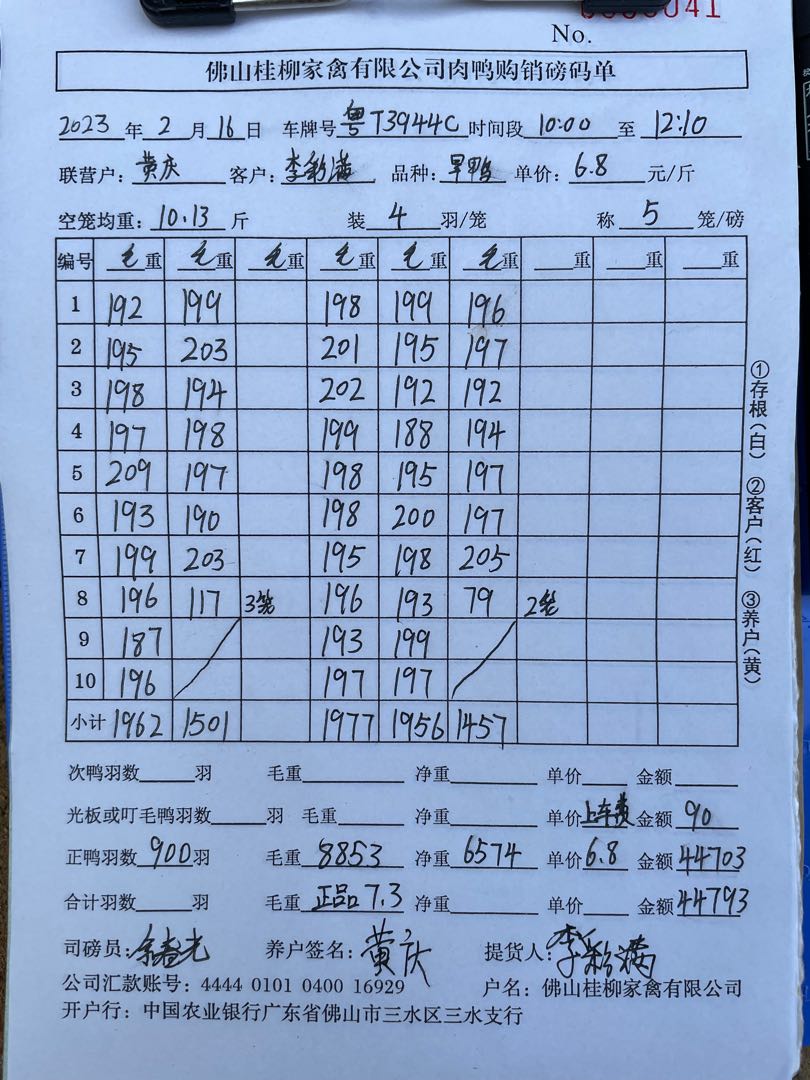 No. 0000041
佛山桂柳家禽有限公司肉鸭购销磅码单
2023 年 2 月 16 日 车牌号 粤T3944C 时间段 10:00 至 12:10
联营户: 黄庆 客户: 李彩满 品种: 早鸭 单价: 6.8 元/斤
空笼均重: 10.13 斤 装 4 羽/笼 称 5 笼/磅
编号 毛重 毛重 毛重 毛重 毛重 毛重 重 重 重
1 192 199 198 199 196
2 195 203 201 195 197
3 198 194 202 192 192
4 197 198 199 188 194
5 209 197 198 195 197
6 193 190 198 200 197
7 199 203 195 198 205
8 196 117 3笼 196 193 79 2笼
9 187 193 199
10 196 197 197
小计 1962 1501 1977 1956 1457
次鸭羽数 羽 毛重 净重 单价 金额
光板或叮毛鸭羽数 羽 毛重 净重 单价 上车费 金额 90
正鸭羽数 900 羽 毛重 8853 净重 6574 单价 6.8 金额 44703
合计羽数 羽 毛重 正品7.3 净重 单价 金额 44793
司磅员: 余春光 养户签名: 黄庆 提货人: 李彩满
公司汇款账号: 4444 0101 0400 16929 户名: 佛山桂柳家禽有限公司
开户行: 中国农业银行广东省佛山市三水区三水支行
①存根(白) ②客户(红) ③养户(黄)